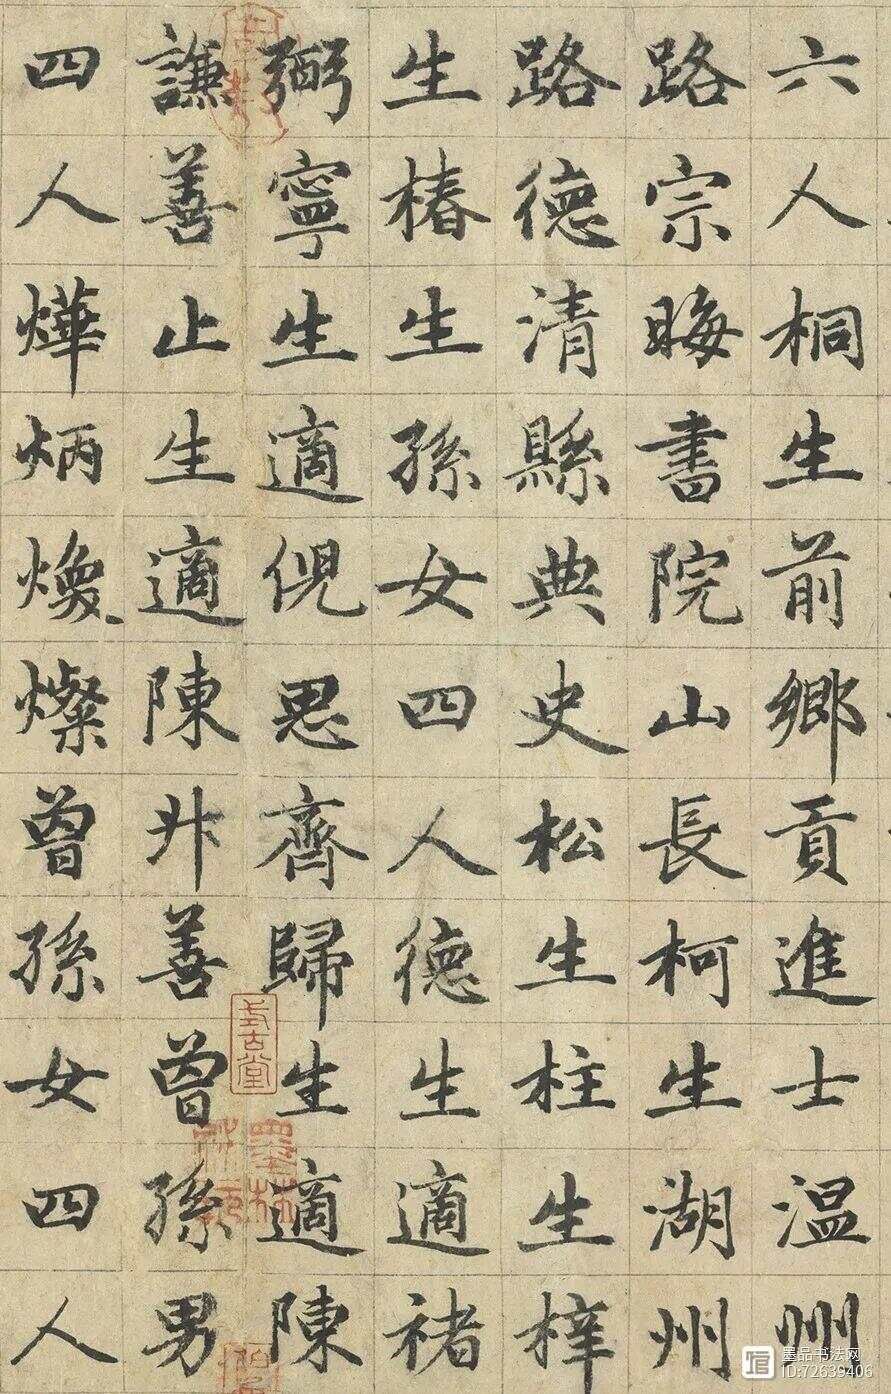 六人桐生前鄉貢進士温州
路宗晦書院山長柯生湖州
路德清縣典史松生柱生梓
生椿生孫女四人德生適褚
弼寧生適倪思齊歸生適陳
謙善止生適陳廾善曾孫男
四人燁炳煥燦曾孫女四人
墨林
墨品书法网
ID:72639406